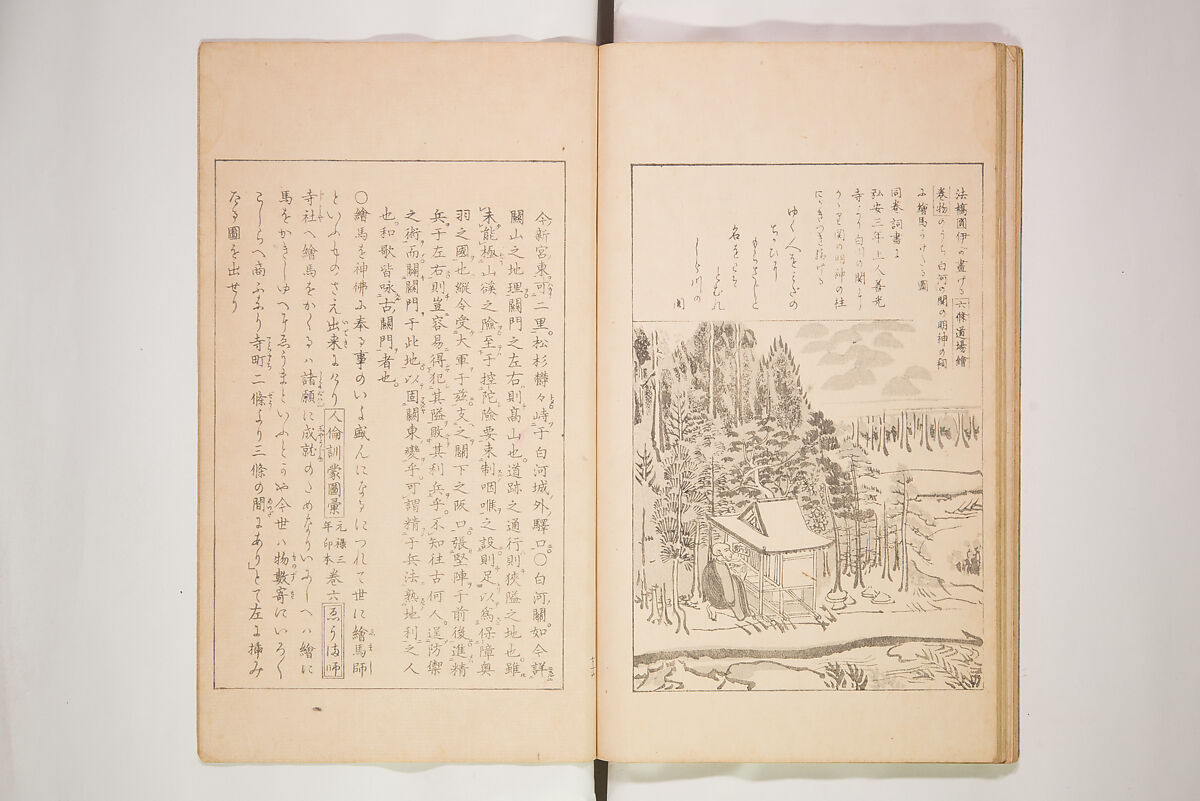 法橋圓伊の畫ける六條道場繪
巻物のうち白河の關の明神の祠
に繪馬かけたる圖
同巻詞書に
弘安三年上人善光
寺より白川の關にかゝり
關の明神の柱
にかきつき給ける
ゆく人を
名をとめ
しら川の
關
今新宮東可二里松杉欝々峙于白河城外驛口〇白河關如今詳
關山之地理關門之左右則高山也道跡之通行則狹隘之地也雖
未能極山谿之險至于控陀險要束制咽喉之設則足以爲保障奥
羽之國也縱令受大軍于茲支之關下之阪口張堅陣于前後進精
兵于左右則豈容易得犯其隘敗其利兵乎不知往古何人逞防禦
之術而關關門于此地以固關東變乎可謂精于兵法熟地利之人
也和歌皆咏古關門者也
〇繪馬を神佛に奉る事のいよ盛んになるにつれて世に繪馬師
といふものさえ出来にけり人倫訓蒙圖彙元禄三年印本巻六ゑうま師
寺社へ繪馬をかくるハ諸願に成就のためなりいにしへハ繪に
馬をかきしゆへにゑうまといふとかや今世ハ物數寄にいろ〱
こしらへ商ふなり寺町二條より三條の間にありとて左に挿み
たる圖を出せり